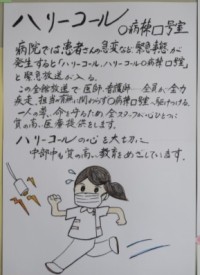 ハリーコール
○病棟○号室
病院では患者さんの急変など緊急事態が
発生すると「ハリーコール、ハリーコール○病棟○号室」
と緊急放送が入る。
この全館放送で医師、看護師 全員が全力
疾走、担当の有無に関わらず○病棟○号室へ駆けつける。
一人の尊い命を守るため全スタッフが心ひとつに
質の高い医療提供をします。
ハリーコールの心を大切に
中部中も質の高い教育をめざしています。